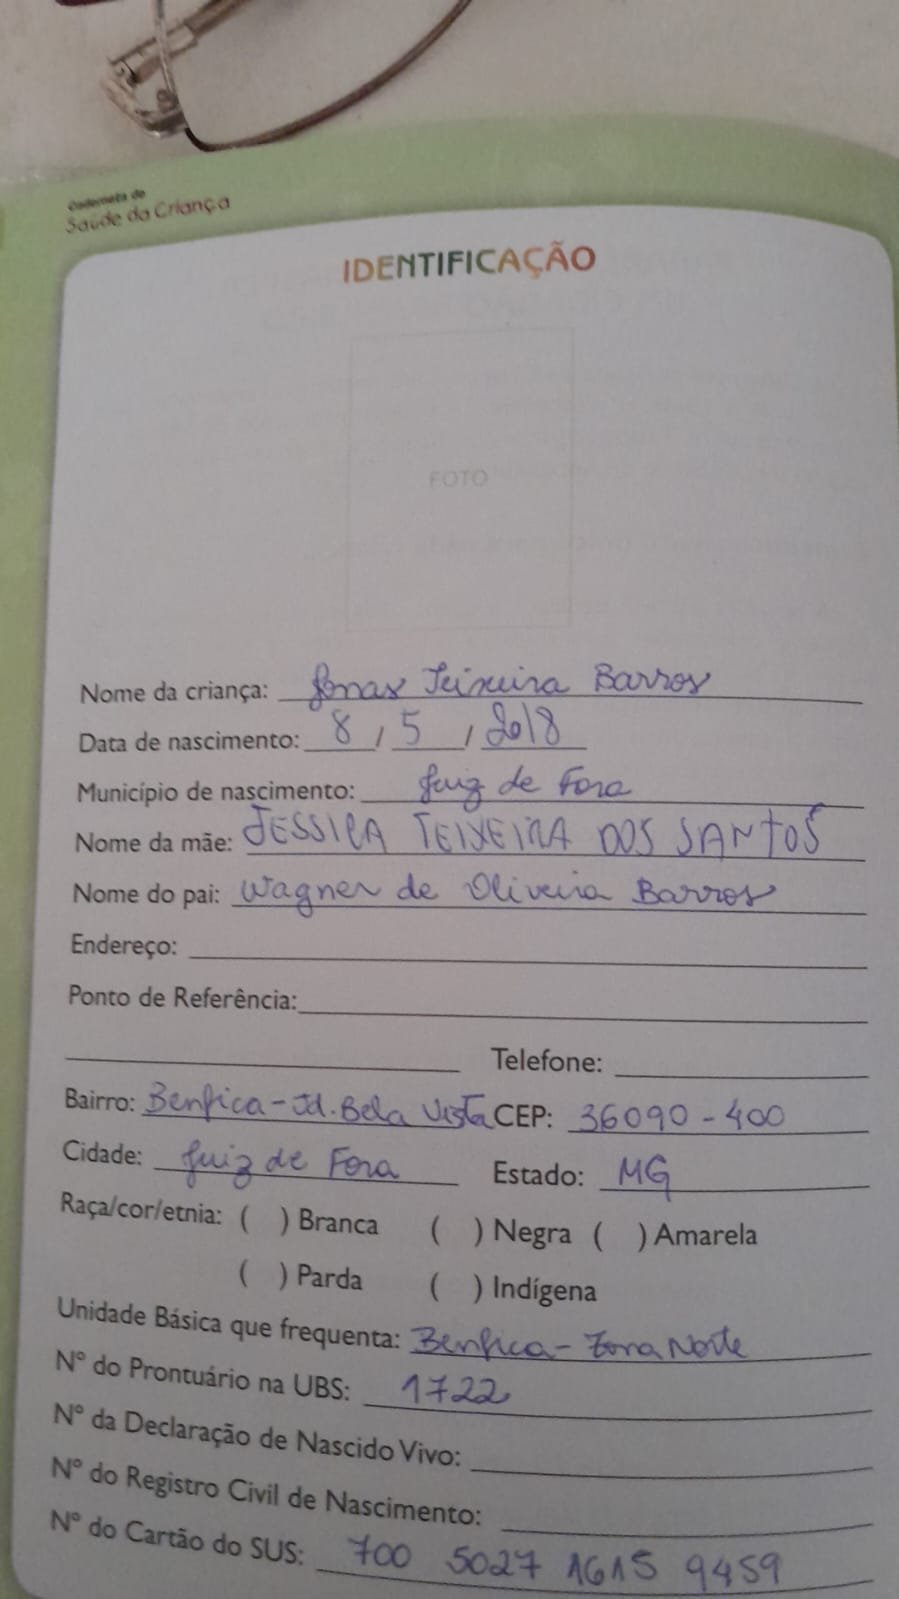 Caderneta de
Saúde da Criança
IDENTIFICAÇÃO
FOTO
Nome da criança: Jonas Teixeira Barros
Data de nascimento: 8 / 5 / 2018
Município de nascimento: Juiz de Fora
Nome da mãe: JESSICA TEIXEIRA DOS SANTOS
Nome do pai: Wagner de Oliveira Barros
Endereço:
Ponto de Referência:
Telefone:
Bairro: Benfica - Jd. Bela Vista CEP: 36090-400
Cidade: Juiz de Fora Estado: MG
Raça/cor/etnia: ( ) Branca ( ) Negra ( ) Amarela
( ) Parda ( ) Indígena
Unidade Básica que frequenta: Benfica - Zona Norte
Nº do Prontuário na UBS: 1722
Nº da Declaração de Nascido Vivo:
Nº do Registro Civil de Nascimento:
Nº do Cartão do SUS: 700 5027 1615 9459